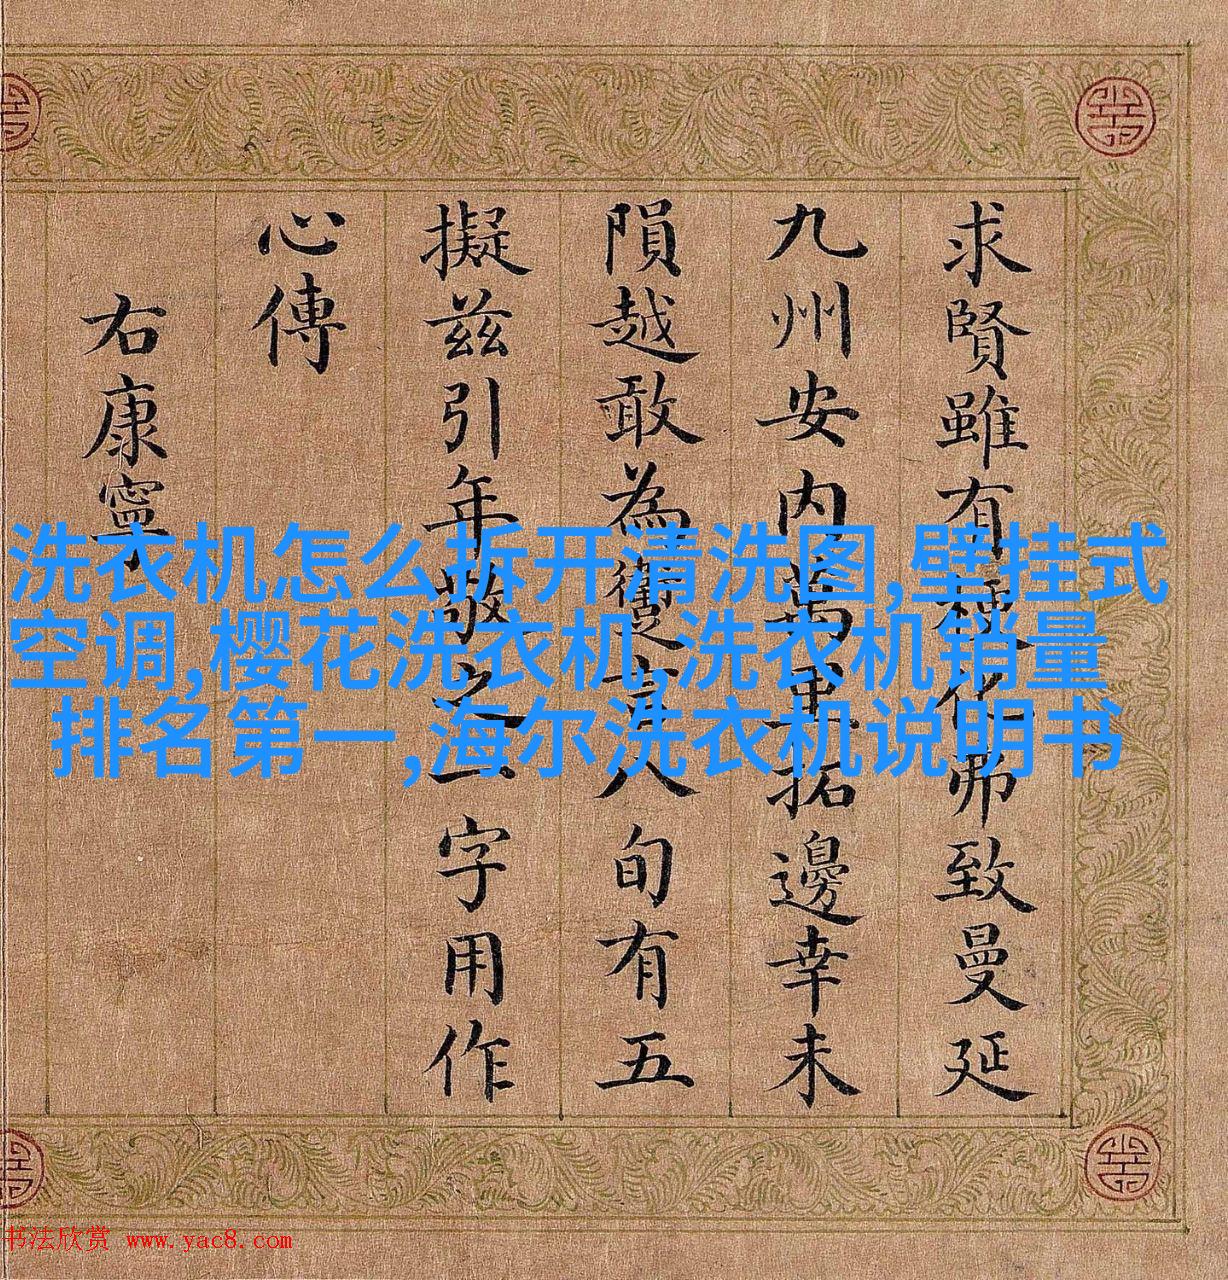 求賢雖有梗化弗致曼延
九州安内萬里拓邊幸未
隕越敢為言八旬有五
擬兹引年敬之一字用作
心傳
右康寧
洗衣机怎么拆开清洗图,壁挂式
空调,樱花洗衣机,洗衣机销量
排名第一,海尔洗衣机说明书
书法欣赏 www.yac8.com